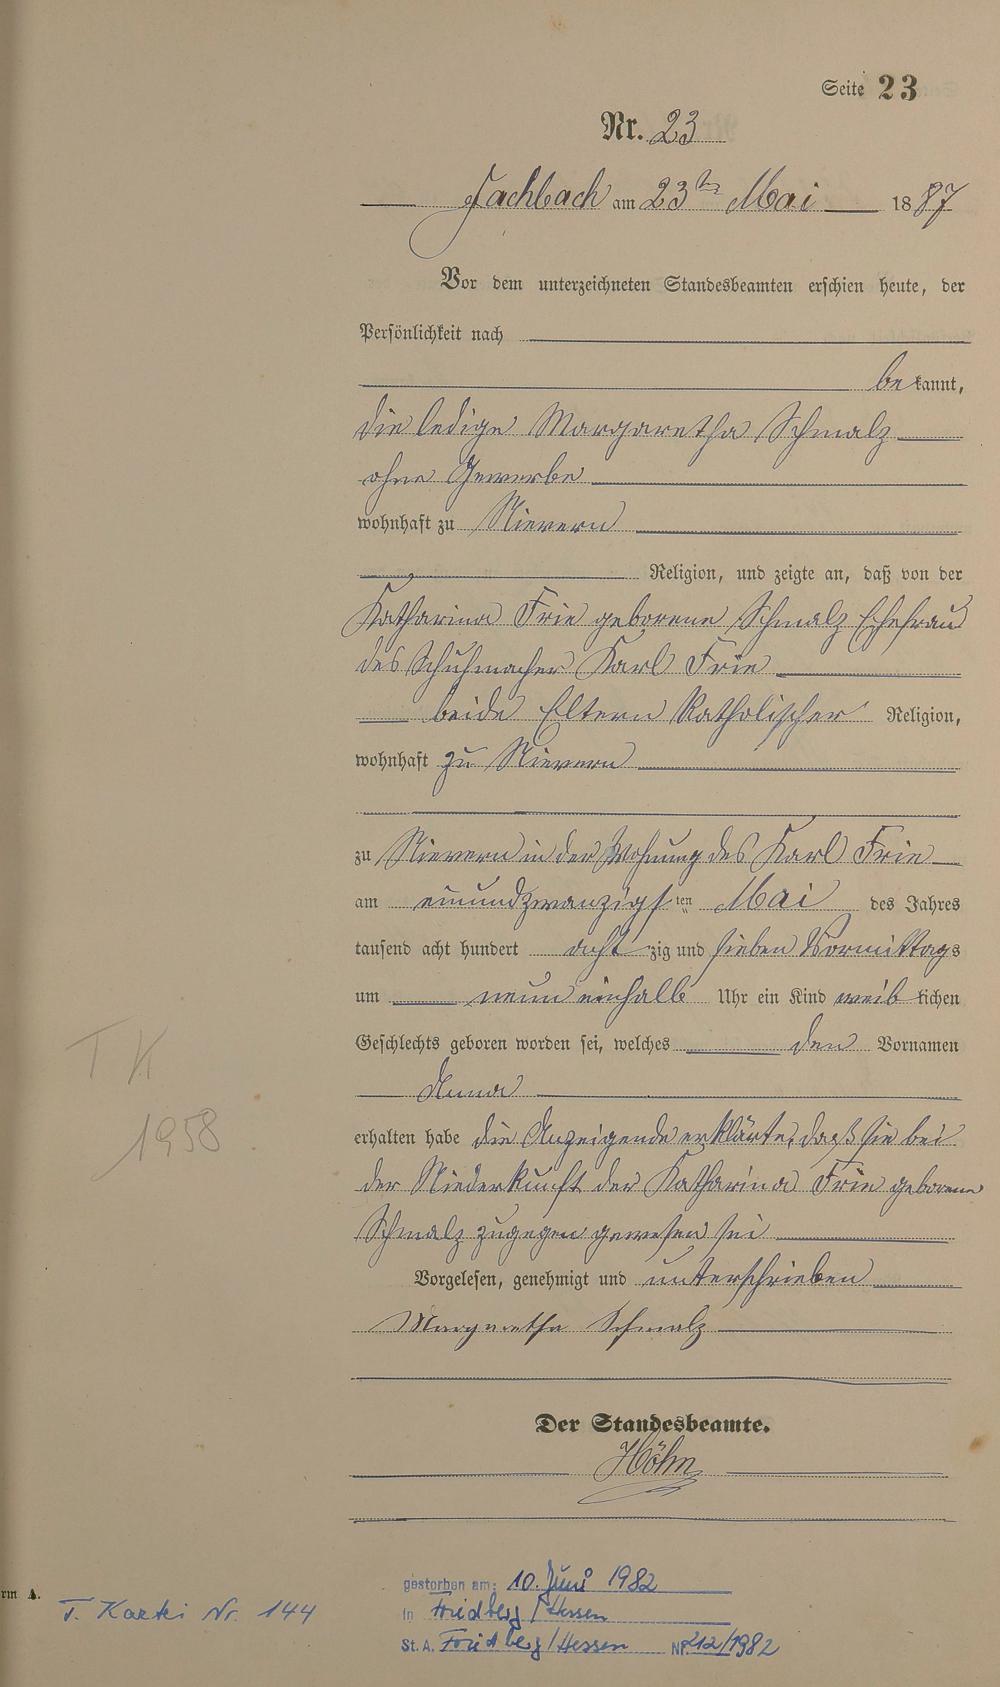 Seite 23
Nr. 23
Fachbach am 23ten Mai 1887
Vor dem unterzeichneten Standesbeamten erschien heute, der
Persönlichkeit nach
bekannt,
die ledige Margaretha Schmalz
ohne Gewerbe
wohnhaft zu Nievern
Religion, und zeigte an, daß von der
Katharina Frie geborene Schmalz Ehefrau
des Schuhmacher Karl Frie
beide Eltern Katholischer Religion,
wohnhaft zu Nievern
zu Nievern in der Wohnung des Karl Frie
am einundzwanzigsten Mai des Jahres
tausend acht hundert achtzig und sieben Vormittags
um neun einhalb Uhr ein Kind weiblichen
Geschlechts geboren worden sei, welches den Vornamen
Anna
erhalten habe die Anzeigende erklärte, daß sie bei
der Niederkunft der Katharina Frie geborene
Schmalz zugegen gewesen sei
Vorgelesen, genehmigt und unterschrieben
Margaretha Schmalz
Der Standesbeamte.
Höhn
T K
1958
rm A.
T. Kartei Nr. 144
gestorben am: 10. Juni 1982
in Friedberg/Hessen
St.A. Friedberg/Hessen Nr. 212/1982